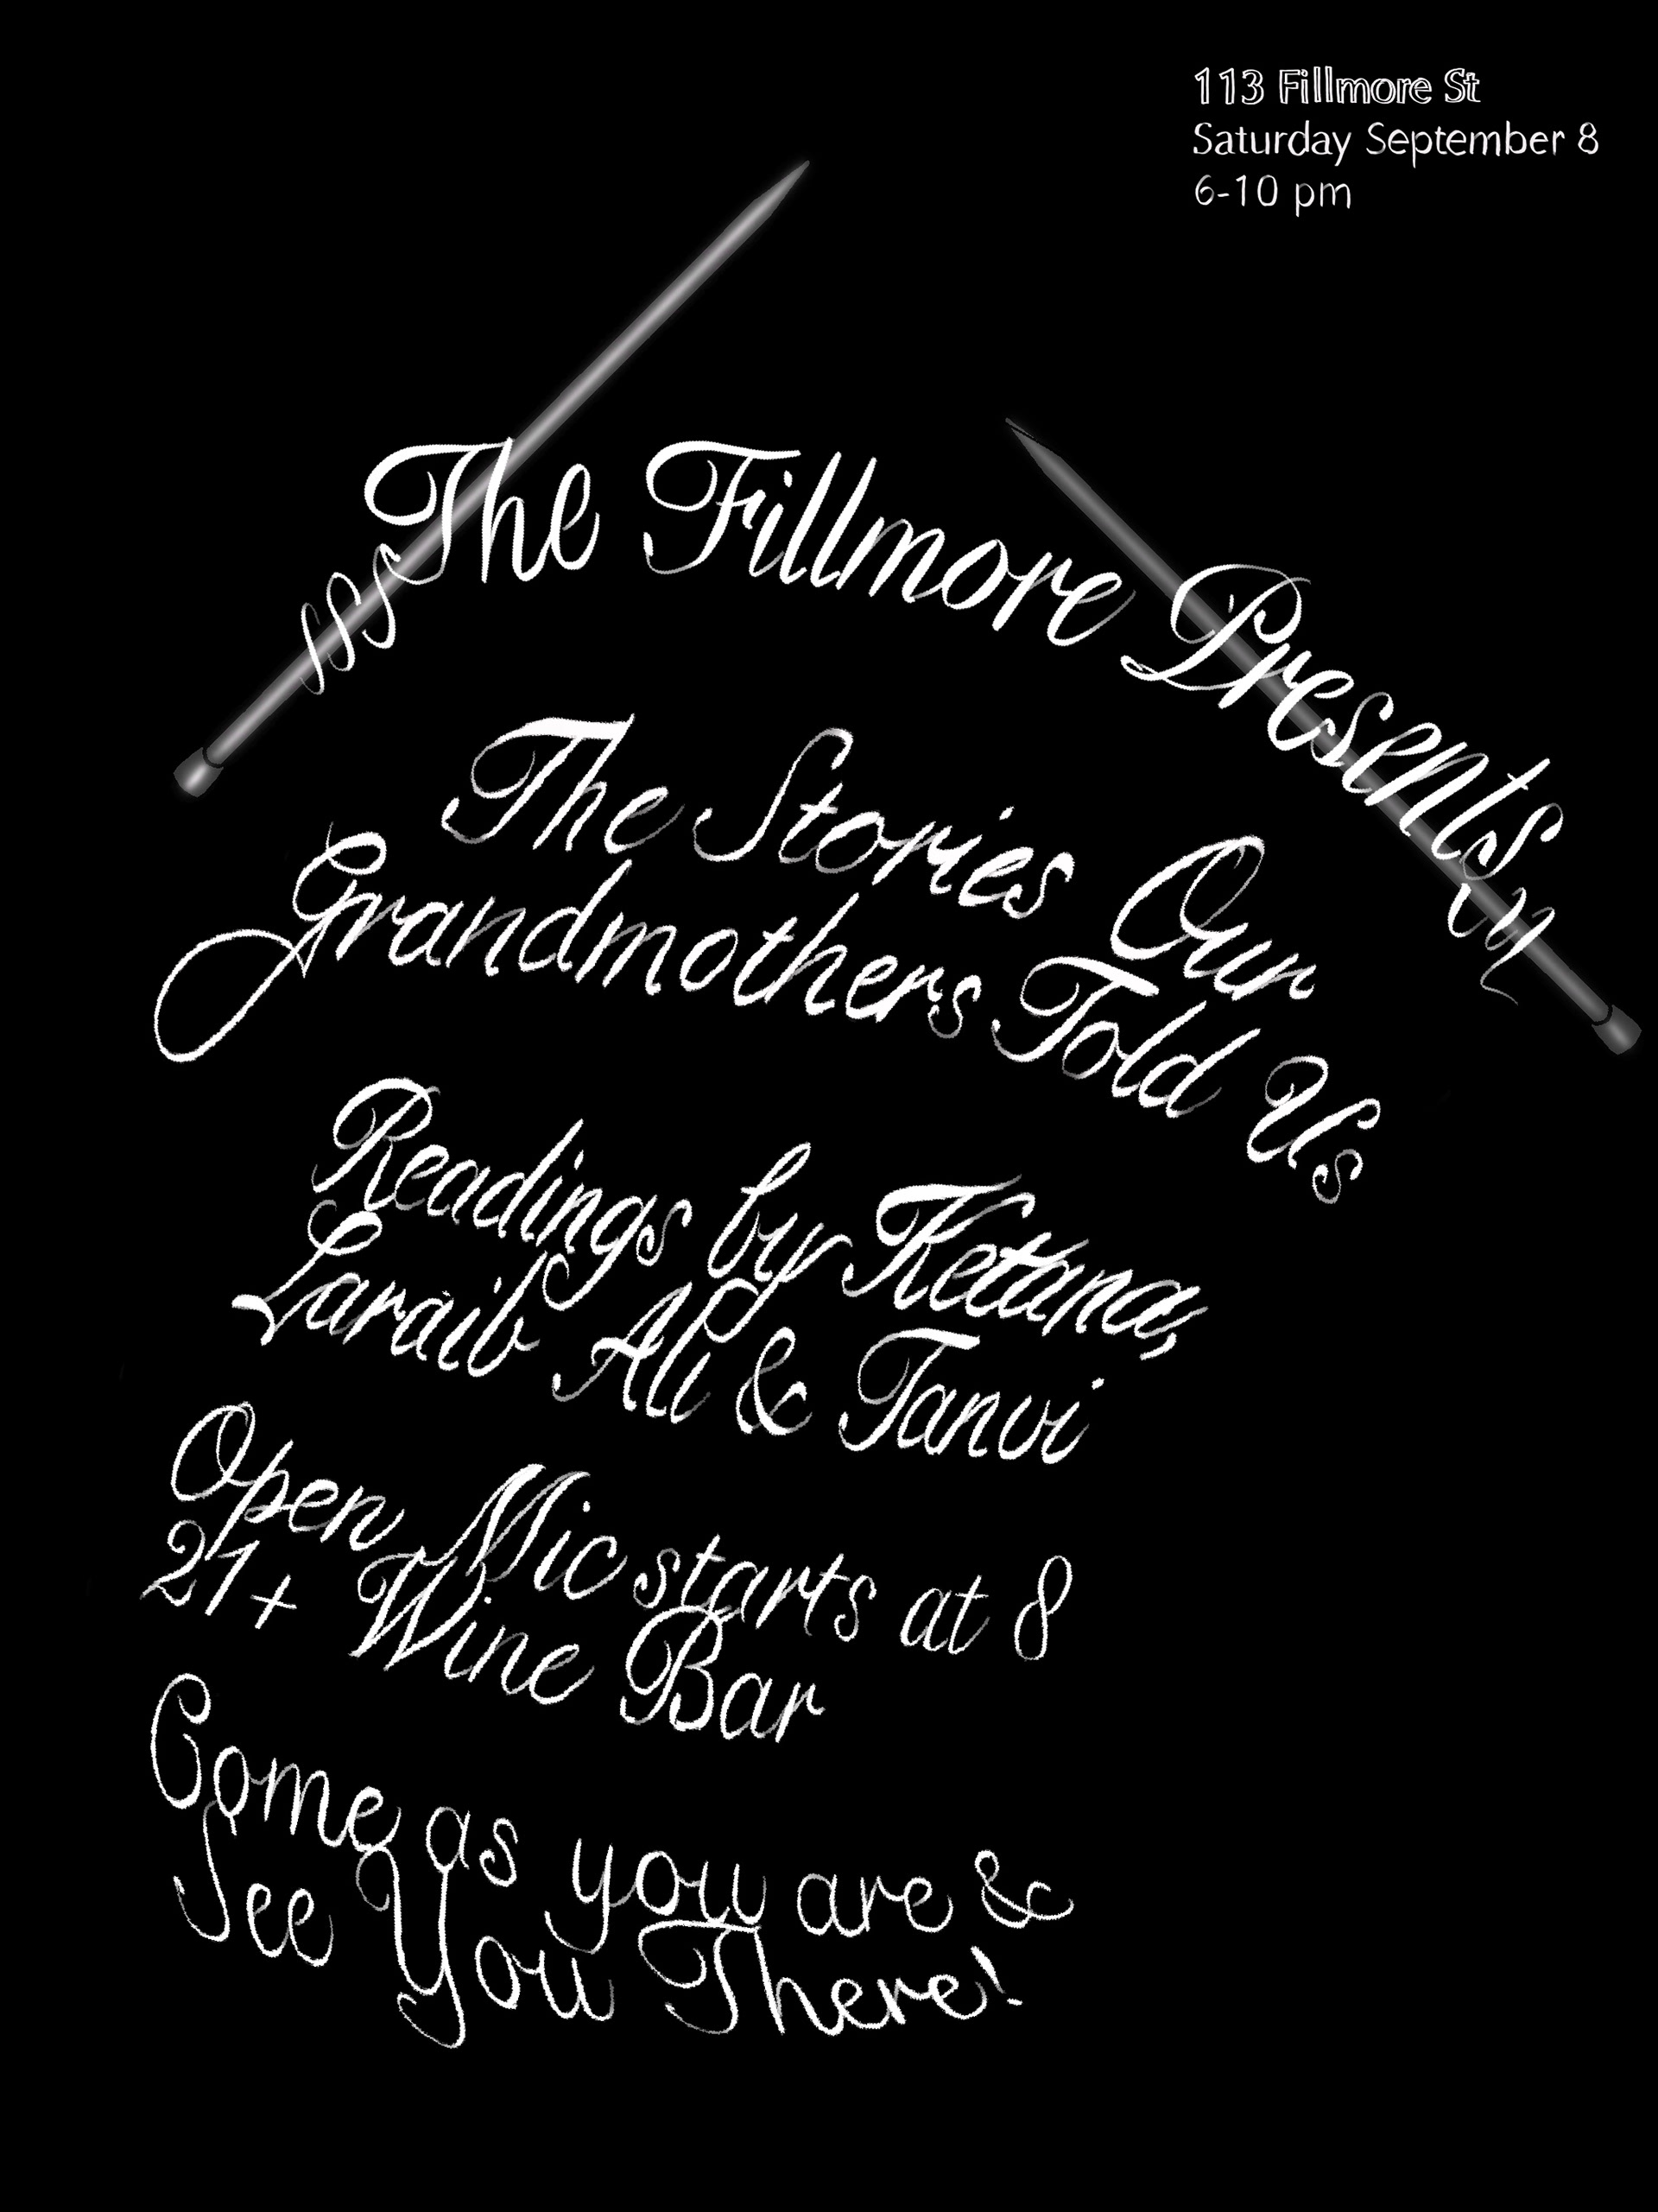 113 Fillmore St
Saturday September 8
6-10 pm
The Fillmore Presents
The Stories Our
Grandmothers Told Us
Readings by Ketana,
Laraib Ali & Tanvi
Open Mic starts at 8
21+ Wine Bar
Come as you are &
See You There!